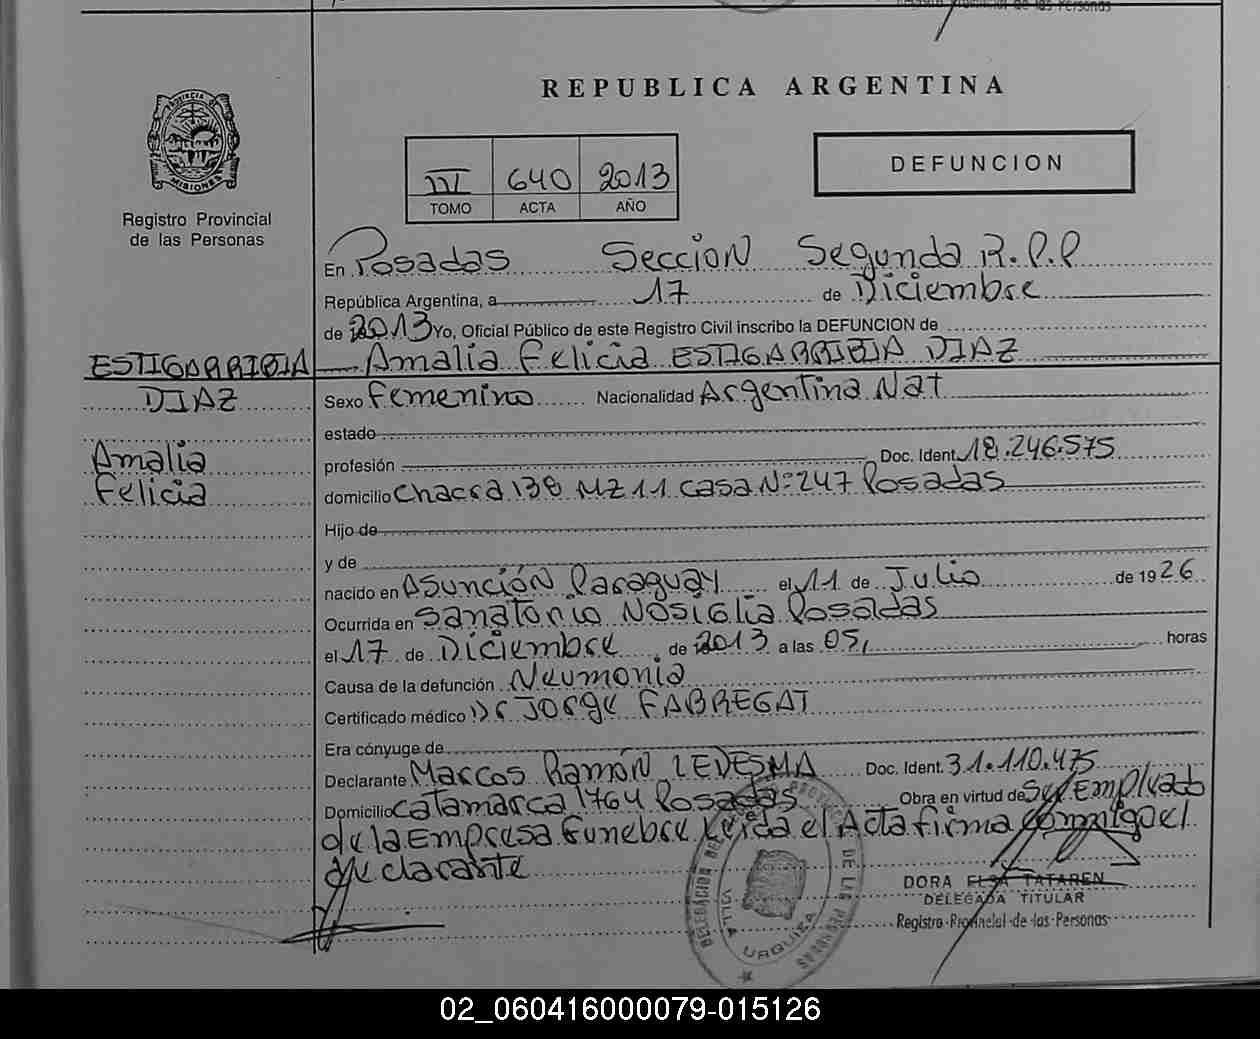 Registro Provincial de las Personas
REPUBLICA ARGENTINA
PROVINCIA DE
MISIONES
Registro Provincial
de las Personas
III 640 2013
TOMO ACTA AÑO
DEFUNCION
En Posadas Seccion Segunda R.P.P
República Argentina, a 17 de Diciembre
de 2013 Yo, Oficial Público de este Registro Civil inscribo la DEFUNCION de
ESTIGARRIBIA
DIAZ
Amalia
Felicia
Amalia Felicia ESTIGARRIBIA DIAZ
Sexo Femenino Nacionalidad Argentina Nat
estado
profesión Doc. Ident. 18.246.575
domicilio Chacra 138 MZ 11 casa Nº 247 Posadas
Hijo de
y de
nacido en Asunción Paraguay el 11 de Julio de 1926
Ocurrida en Sanatorio Nosiglia Posadas
el 17 de Diciembre de 2013 a las 05, horas
Causa de la defunción Neumonia
Certificado médico Dr Jorge FABREGAT
Era cónyuge de
Declarante Marcos Ramón LEDESMA Doc. Ident. 31.110.475
Domicilio Catamarca 1764 Posadas Obra en virtud de Ser Empleado
de la Empresa Funebre Leida el Acta firma conmigo el
declarante
DORA ELSA TATAREN
DELEGADA TITULAR
Registro Provincial de las Personas
VILLA URQUIZA
02_060416000079-015126